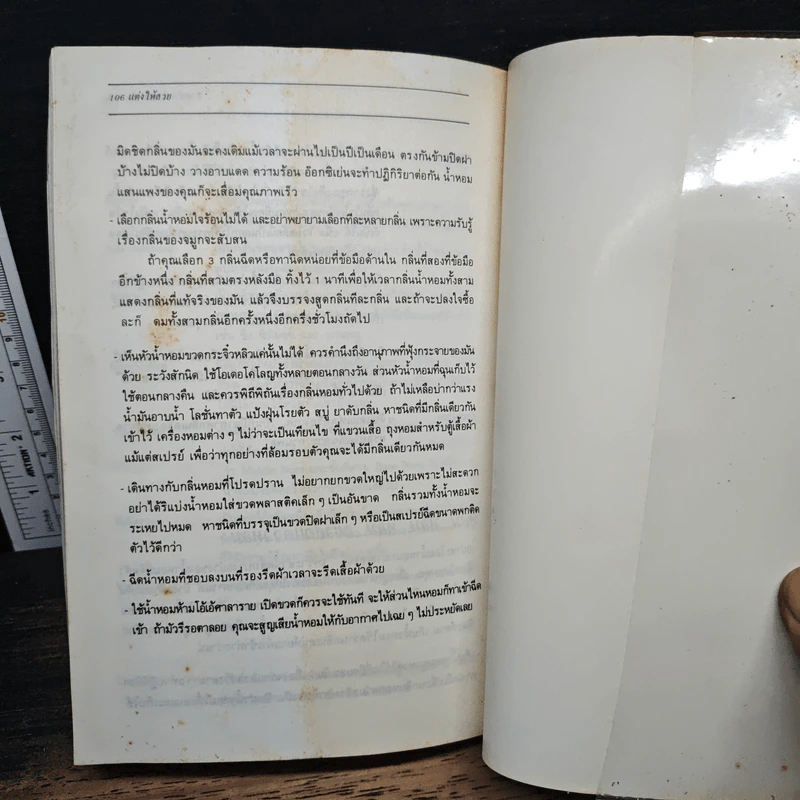 106 แต่งให้สวย
มิดชิดกลิ่นของมันจะคงเดิมแม้เวลาจะผ่านไปเป็นปีเป็นเดือน ตรงกันข้ามปิดฝา
บ้างไม่ปิดบ้าง วางอาบแดด ความร้อน อ๊อกซิเย่นจะทำปฏิกิริยาต่อกัน น้ำหอม
แสนแพงของคุณก็จะเสื่อมคุณภาพเร็ว
- เลือกกลิ่นน้ำหอมใจร้อนไม่ได้ และอย่าพยายามเลือกทีละหลายกลิ่น เพราะความรับรู้
เรื่องกลิ่นของจมูกจะสับสน
ถ้าคุณเลือก 3 กลิ่นฉีดหรือทานิดหน่อยที่ข้อมือด้านใน กลิ่นที่สองที่ข้อมือ
อีกข้างหนึ่ง กลิ่นที่สามตรงหลังมือ ทิ้งไว้ 1 นาทีเพื่อให้เวลากลิ่นน้ำหอมทั้งสาม
แสดงกลิ่นที่แท้จริงของมัน แล้วจึงบรรจงสูดกลิ่นทีละกลิ่น และถ้าจะปลงใจซื้อ
ละก็ ดมทั้งสามกลิ่นอีกครั้งหนึ่งอีกครึ่งชั่วโมงถัดไป
- เห็นหัวน้ำหอมขวดกระจิ๋วหลิวแค่นั้นไม่ได้ ควรคำนึงถึงอานุภาพที่ฟุ้งกระจายของมัน
ด้วย ระวังสักนิด ใช้โอเดอโคโลญทั้งหลายตอนกลางวัน ส่วนหัวน้ำหอมที่ฉุนเก็บไว้
ใช้ตอนกลางคืน และควรพิถีพิถันเรื่องกลิ่นหอมทั่วไปด้วย ถ้าไม่เหลือบ่ากว่าแรง
น้ำมันอาบน้ำ โลชั่นทาตัว แป้งฝุ่นโรยตัว สบู่ ยาดับกลิ่น หาชนิดที่มีกลิ่นเดียวกัน
เข้าไว้ เครื่องหอมต่าง ๆ ไม่ว่าจะเป็นเทียนไข ที่แขวนเสื้อ ถุงหอมสำหรับตู้เสื้อผ้า
แม้แต่สเปรย์ เพื่อว่าทุกอย่างที่ล้อมรอบตัวคุณจะได้มีกลิ่นเดียวกันหมด
- เดินทางกับกลิ่นหอมที่โปรดปราน ไม่อยากยกขวดใหญ่ไปด้วยเพราะไม่สะดวก
อย่าได้ริแบ่งน้ำหอมใส่ขวดพลาสติคเล็ก ๆ เป็นอันขาด กลิ่นรวมทั้งน้ำหอมจะ
ระเหยไปหมด หาชนิดที่บรรจุเป็นขวดปิดฝาเล็ก ๆ หรือเป็นสเปรย์ฉีดขนาดพกติด
ตัวไว้ดีกว่า
- ฉีดน้ำหอมที่ชอบลงบนที่รองรีดผ้าเวลาจะรีดเสื้อผ้าด้วย
- ใช้น้ำหอมห้ามโอ้เอ้ศาลาราย เปิดขวดก็ควรจะใช้ทันที จะให้ส่วนไหนหอมก็ทาเข้าฉีด
เข้า ถ้ามัวรีรอตาลอย คุณจะสูญเสียน้ำหอมให้กับอากาศไปเฉย ๆ ไม่ประหยัดเลย